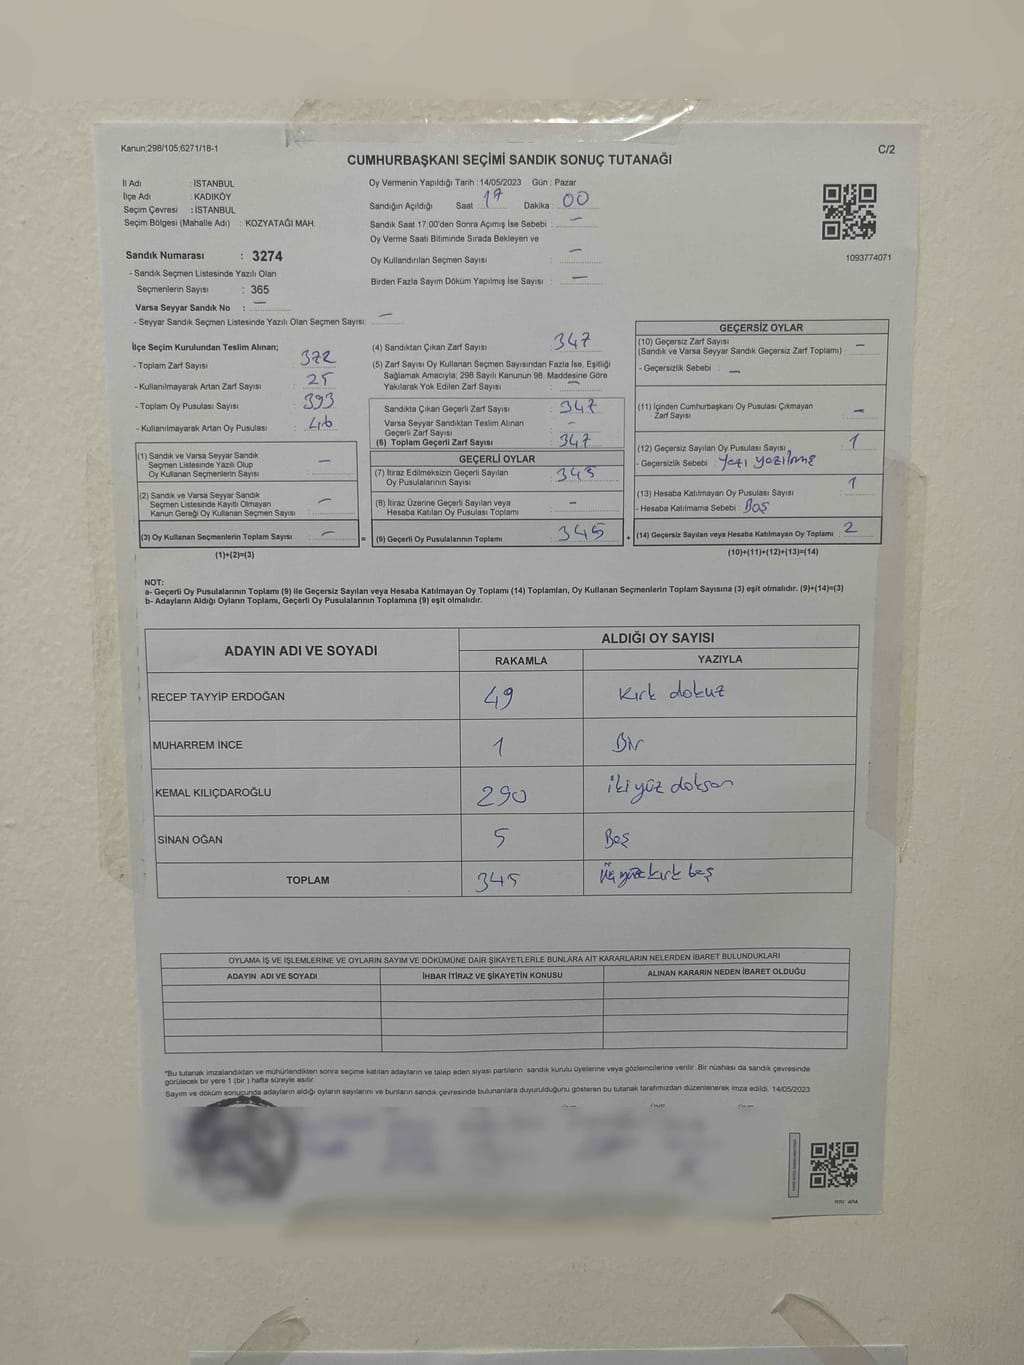 Kanun;298/105;6271/18-1
C/2
CUMHURBAŞKANI SEÇİMİ SANDIK SONUÇ TUTANAĞI
İl Adı : İSTANBUL
İlçe Adı : KADIKÖY
Seçim Çevresi : İSTANBUL
Seçim Bölgesi (Mahalle Adı) : KOZYATAĞI MAH.
Sandık Numarası : 3274
- Sandık Seçmen Listesinde Yazılı Olan
Seçmenlerin Sayısı : 365
Varsa Seyyar Sandık No : —
- Seyyar Sandık Seçmen Listesinde Yazılı Olan Seçmen Sayısı: —
Oy Vermenin Yapıldığı Tarih : 14/05/2023 Gün : Pazar
Sandığın Açıldığı Saat : 17 Dakika : 00
Sandık Saat 17:00'den Sonra Açımış İse Sebebi : —
Oy Verme Saati Bitiminde Sırada Bekleyen ve
Oy Kullandırılan Seçmen Sayısı : —
Birden Fazla Sayım Döküm Yapılmış İse Sayısı : —
1093774071
İlçe Seçim Kurulundan Teslim Alınan;
- Toplam Zarf Sayısı : 372
- Kullanılmayarak Artan Zarf Sayısı : 25
- Toplam Oy Pusulası Sayısı : 393
- Kullanılmayarak Artan Oy Pusulası : 46
(1) Sandık ve Varsa Seyyar Sandık
Seçmen Listesinde Yazılı Olup
Oy Kullanan Seçmenlerin Sayısı —
(2) Sandık ve Varsa Seyyar Sandık
Seçmen Listesinde Kayıtlı Olmayan
Kanun Gereği Oy Kullanan Seçmen Sayısı : —
(3) Oy Kullanan Seçmenlerin Toplam Sayısı : —
(1)+(2)=(3)
(4) Sandıktan Çıkan Zarf Sayısı : 347
(5) Zarf Sayısı Oy Kullanan Seçmen Sayısından Fazla İse, Eşitliği
Sağlamak Amacıyla; 298 Sayılı Kanunun 98. Maddesine Göre
Yakılarak Yok Edilen Zarf Sayısı : —
Sandıkta Çıkan Geçerli Zarf Sayısı : 347
Varsa Seyyar Sandıktan Teslim Alınan
Geçerli Zarf Sayısı : -
(6) Toplam Geçerli Zarf Sayısı : 347
GEÇERLİ OYLAR
(7) İtiraz Edilmeksizin Geçerli Sayılan
Oy Pusulalarının Sayısı : 345
(8) İtiraz Üzerine Geçerli Sayılan veya
Hesaba Katılan Oy Pusulası Toplamı : -
= (9) Geçerli Oy Pusulalarının Toplamı : 345 +
GEÇERSİZ OYLAR
(10) Geçersiz Zarf Sayısı
(Sandık ve Varsa Seyyar Sandık Geçersiz Zarf Toplamı) : —
- Geçersizlik Sebebi : —
(11) İçinden Cumhurbaşkanı Oy Pusulası Çıkmayan
Zarf Sayısı —
(12) Geçersiz Sayılan Oy Pusulası Sayısı 1
- Geçersizlik Sebebi : Yazı yazılmış
(13) Hesaba Katılmayan Oy Pusulası Sayısı 1
- Hesaba Katılmama Sebebi : Boş
(14) Geçersiz Sayılan veya Hesaba Katılmayan Oy Toplamı : 2
(10)+(11)+(12)+(13)=(14)
NOT:
a- Geçerli Oy Pusulalarının Toplamı (9) ile Geçersiz Sayılan veya Hesaba Katılmayan Oy Toplamı (14) Toplamları, Oy Kullanan Seçmenlerin Toplam Sayısına (3) eşit olmalıdır. (9)+(14)=(3)
b- Adayların Aldığı Oyların Toplamı, Geçerli Oy Pusulalarının Toplamına (9) eşit olmalıdır.
ADAYIN ADI VE SOYADI ALDIĞI OY SAYISI
RAKAMLA YAZIYLA
RECEP TAYYİP ERDOĞAN 49 kırk dokuz
MUHARREM İNCE 1 Bir
KEMAL KILIÇDAROĞLU 290 iki yüz doksan
SİNAN OĞAN 5 Beş
TOPLAM 345 Üç yüz kırk beş
OYLAMA İŞ VE İŞLEMLERİNE VE OYLARIN SAYIM VE DÖKÜMÜNE DAİR ŞİKAYETLERLE BUNLARA AİT KARARLARIN NELERDEN İBARET BULUNDUKLARI
ADAYIN ADI VE SOYADI İHBAR İTİRAZ VE ŞİKAYETİN KONUSU ALINAN KARARIN NEDEN İBARET OLDUĞU
"Bu tutanak imzalandıktan ve mühürlendikten sonra seçime katılan adayların ve talep eden siyasi partilerin sandık kurulu üyelerine veya gözlemcilerine verilir. Bir nüshası da sandık çevresinde
görülecek bir yere 1 (bir ) hafta süreyle asılır.
Sayım ve döküm sonucunda adayların aldığı oyların sayılarını ve bunların sandık çevresinde bulunanlara duyurulduğunu gösteren bu tutanak tarafımızdan düzenlenerek imza edildi. 14/05/2023